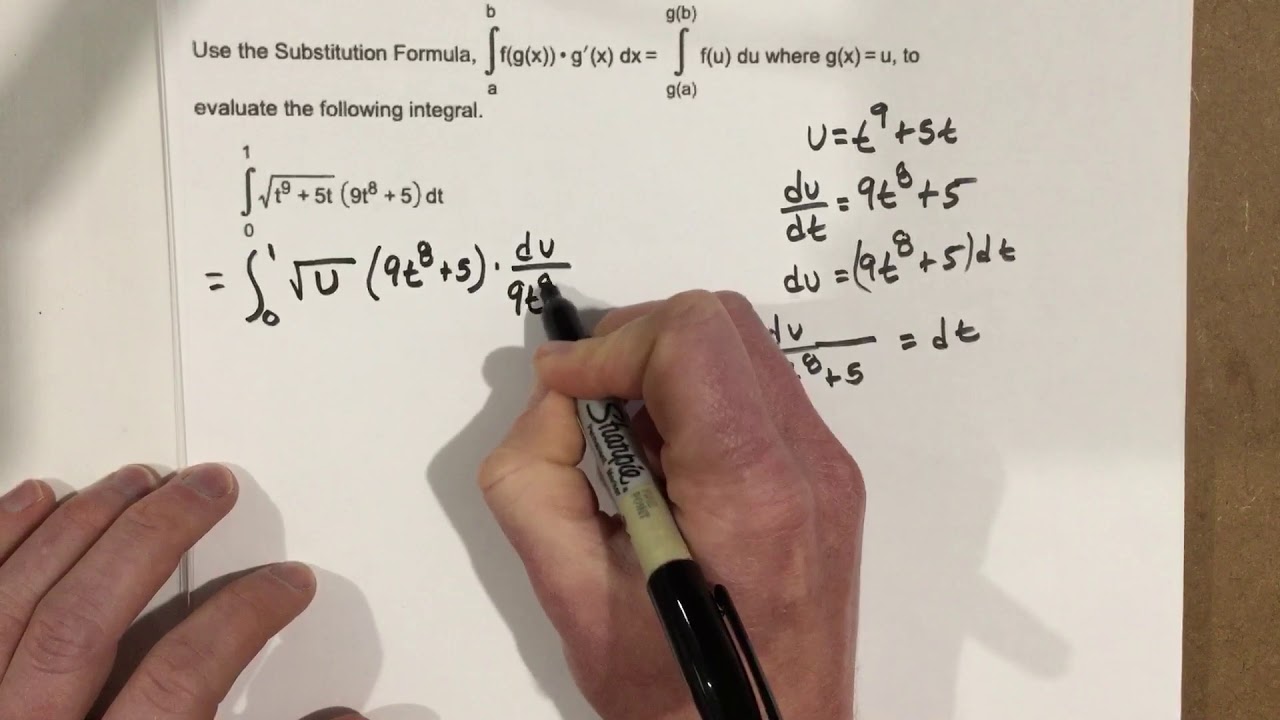 b g(b)
Use the Substitution Formula, ∫f(g(x)) • g′(x) dx = ∫ f(u) du where g(x) = u, to
a g(a)
evaluate the following integral.
1
∫√(t⁹ + 5t) (9t⁸ + 5) dt
0
= ∫₀¹ √U (9t⁸+5) · du/9t⁸
U=t⁹+5t
du/dt = 9t⁸+5
du =(9t⁸+5)dt
du/t⁸+5 = dt
Sharpie.